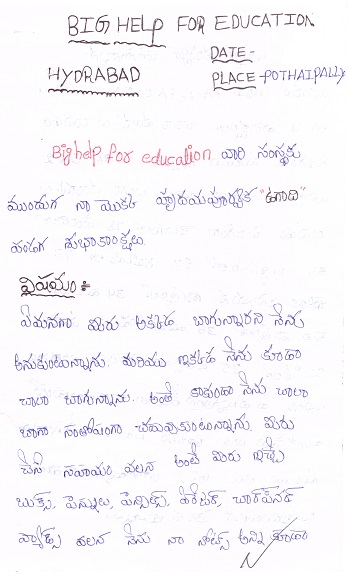 BIG HELP FOR EDUCATION
DATE-
HYDRABAD
PLACE-POTHAIPALLY
Big help for education వారి సంస్థకు
ముందుగ నా యొక్క హృదయపూర్వక "ఉగాది"
పండుగ శుభాకాంక్షలు.
విషయం :-
ఏమనగా మీరు అక్కడ బాగున్నారని నేను
అనుకుంటున్నాను. మరియు ఇక్కడ నేను కూడా
చాలా బాగున్నాను. అంతే కాకుండా నేను చాలా
బాగా సంతోషంగా చదువుకుంటున్నాను. మీరు
చేసే సహాయం వలన అంటే మీరు ఇచ్చే
బుక్స్, పెన్నులు, పెన్సిల్స్,
వలన నేను నా నోట్స్ అన్ని కూడా